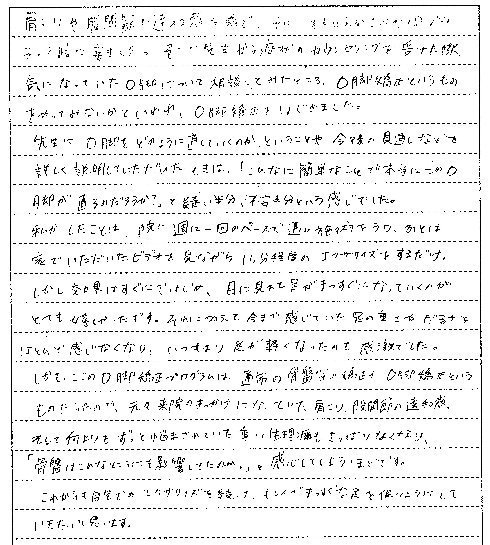 肩こりや股関節に違和感を感じ、
気になっていたO脚について相談してみたところ、O脚矯正というもの
をやってみないかといわれ、O脚矯正をはじめました。
先生に O脚をどのように直していくのか、ということや 今後の見通しなどを
詳しく説明していただいたときは、「こんなに簡単なことで本当にこのO
脚が直るのだろうか?」と疑い半分、不安半分という感じでした。
私がしたことは、院に週に一回のペースで通い、あとは
家でいただいたビデオを見ながら 15分程度のエクササイズをするだけ。
しかし効果はすぐにではじめ、目に見えて足がまっすぐになっていくのが
とても嬉しかったです。それに加えて今まで感じていた足の重さやだるさを
ほとんど感じなくなり、いつもより足が軽くなったのも感激でした。
しかもこのO脚矯正プログラムは、通常の骨盤 矯正+O脚矯正という
ものだったので、元々来院のきっかけになっていた、肩こり、股関節の違和感、
そして何よりもずっと悩まされていた重い生理痛もさっぱりなくなり、
「骨盤はこんなところにも影響してたのか。」と感心してしまうほどです。
これからも自宅でのエクササイズを続け、 まっすぐな足を保つようにして
いきたいと思います。